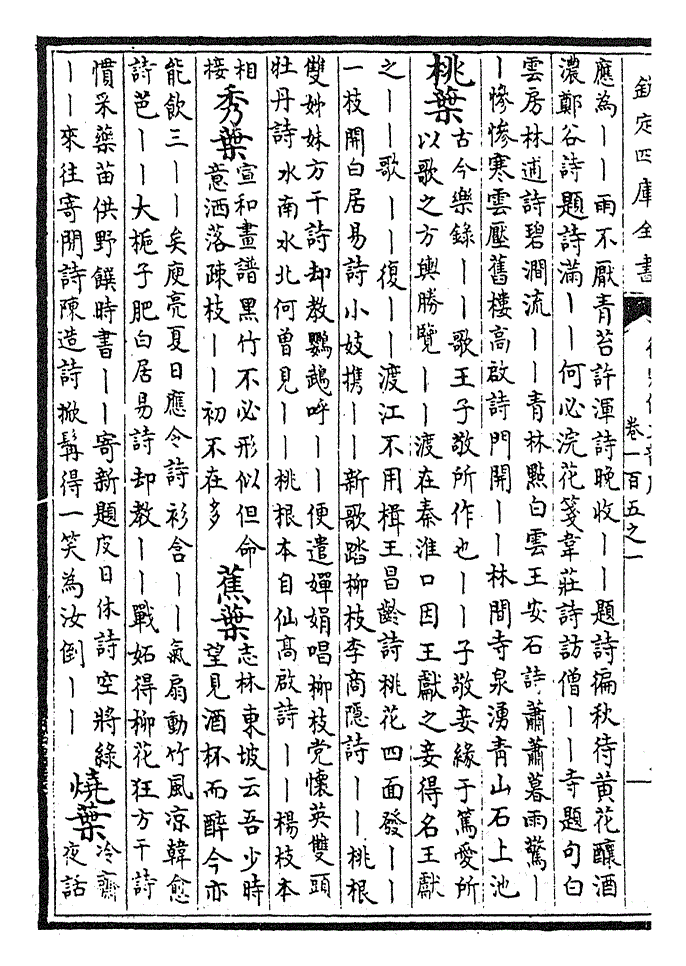 欽定四庫全書
卷一百五之一
應為——雨不厭青苔許渾詩晚收——題詩徧秋待黃花釀酒
濃鄭谷詩題詩滿——何必浣花箋韋莊詩訪僧——寺題句白
雲房林逋詩碧澗流——青林點白雲王安石詩蕭蕭暮雨驚—
—慘慘寒雲壓舊樓高啟詩門開——林間寺泉湧青山石上池
桃葉
古今樂錄——歌王子敬所作也——子敬妾緣于篤愛所
以歌之方輿勝覽——渡在秦淮口因王獻之妾得名王獻
之——歌——復——渡江不用楫王昌齡詩桃花四面發——
一枝開白居易詩小妓攜——新歌踏柳枝李商隱詩——桃根
雙姊妹方干詩却教鸚鵡呼——便遣嬋娟唱柳枝党懷英雙頭
牡丹詩水南水北何曾見——桃根本自仙高啟詩——楊枝本
相
接
秀葉
宣和畫譜黑竹不必形似但命
意洒落疎枝——初不在多
蕉葉
志林東坡云吾少時
望見酒杯而醉今亦
能飲三——矣庾亮夏日應令詩衫含——氣扇動竹風涼韓愈
詩芭——大梔子肥白居易詩却教——戰妬得柳花狂方干詩
慣采藥苗供野饌時書——寄新題皮日休詩空將綠
——來往寄閒詩陳造詩掀髯得一笑為汝倒——
燒葉
冷齋
夜話